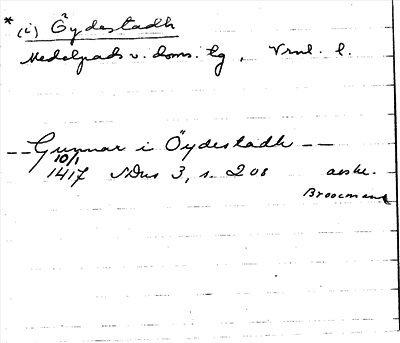 * (i) Öydestadh
Medelpads v. doms. tg, Vrml. l.
-- Gunnar i Öydestadh --
10/1
1417 NDns 3, s. 208 avskr.
Broocman